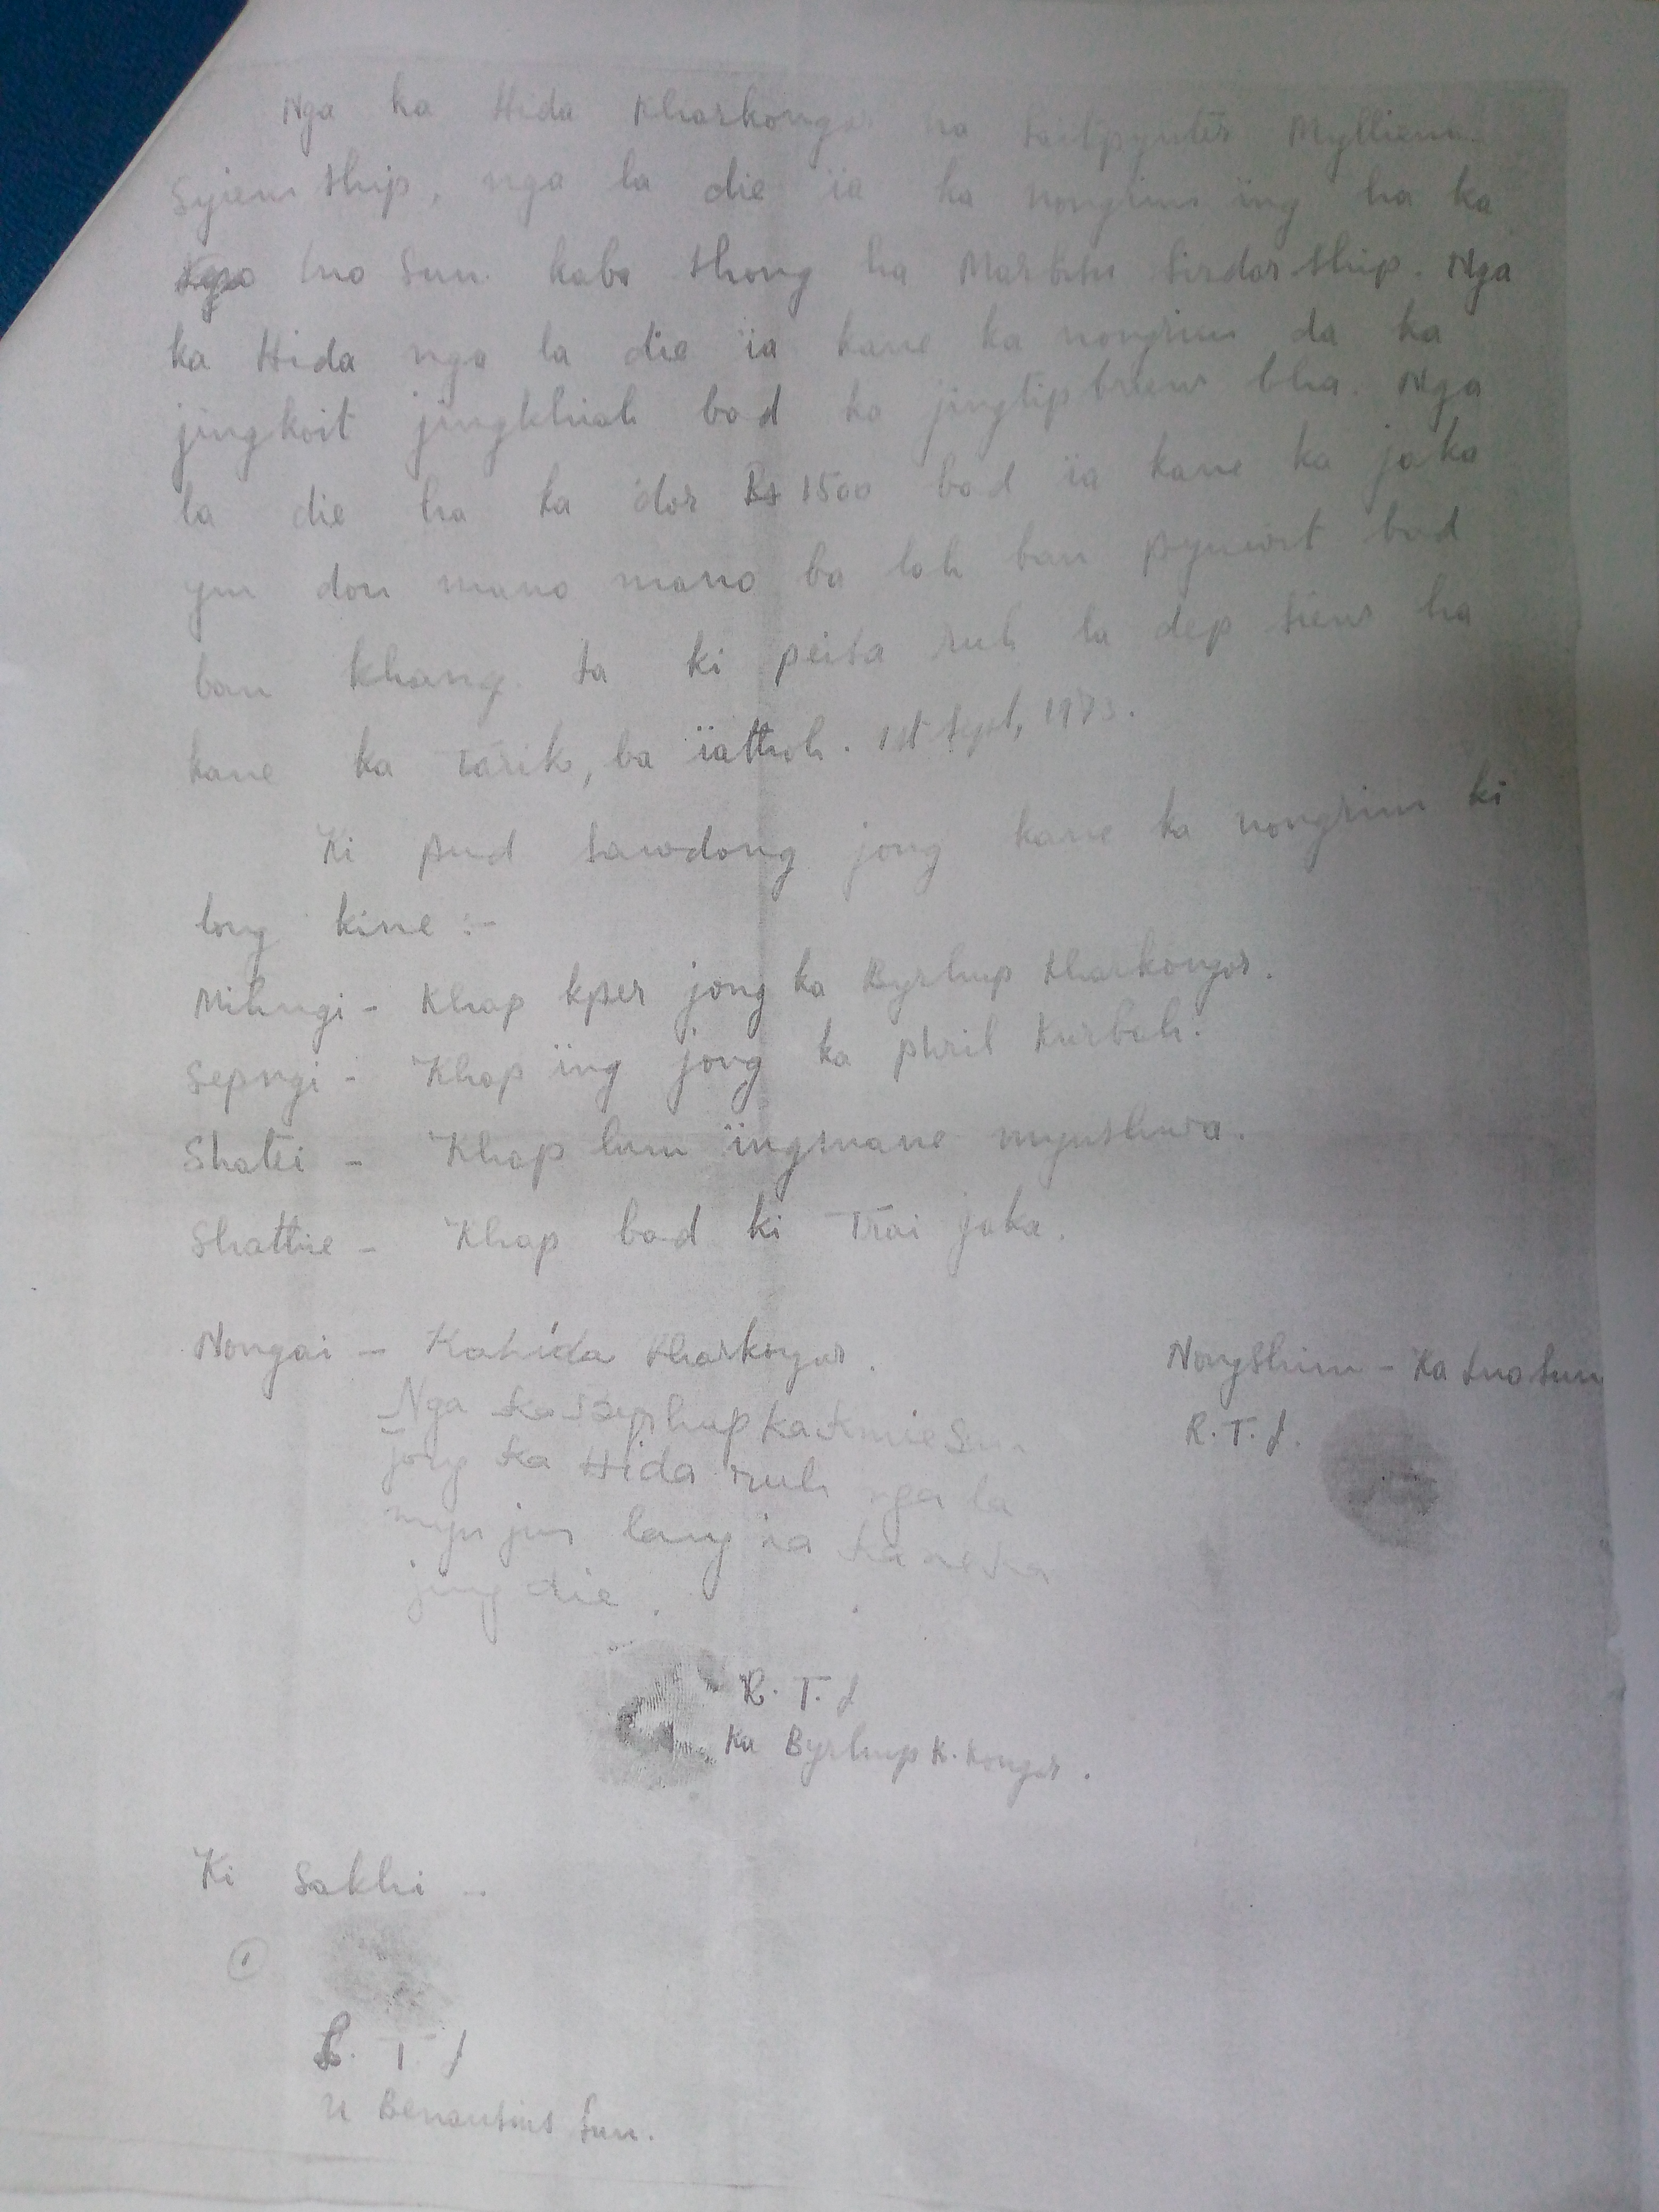 Nga ka Hida Kharkongor na Laitpynter Mylliem
Syiem ship, nga la die ïa ka nongrim ïng ha ka
Sun kaba shong ha Marbisu Sirdar ship. Nga
ka Hida nga la die ïa kane ka nongrim da ka
jingkoit jingkhiah bad ka jingtip briew bha. Nga
la die ha ka dor Rs 1500 bad ïa kane ka jaka
ym don mano mano ba lah ban pynwit bad
ban khang. Ia ki peisa ruh la dep siew ha
kane ka tarik, ba ïathoh. 1st Sept, 1973.
Ki pud sawdong jong kane ka nongrim ki
long kine :-
Mihngi - Khap kper jong ka Byrhup Kharkongor.
Sepngi - Khap ïing jong ka Phril Kurbah.
Shatei - Khap lum ïingmane mynshwa.
Shathie - Khap bad ki Trai jaka.
Nongai - Ka Hida Kharkongor.
Nongshim - Ka Sun
R. T. I.
Nga ka Byrhup ka kmie
jong ka Hida ruh nga la
mynjur lang ia kane ka
jingdie.
R. T. I
Ka Byrhup K. Kongor.
Ki Sakhi -
1
R. T. I
U Sun.